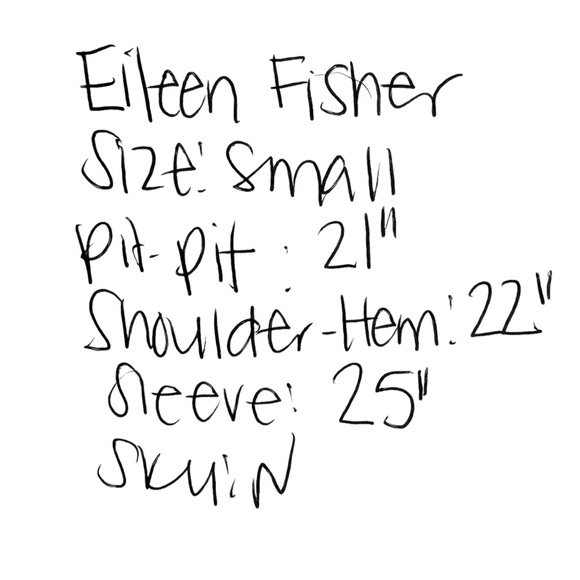 Eileen Fisher
Size: Small
Pit-pit: 21"
Shoulder-Hem: 22"
Sleeve: 25"
SKU: N